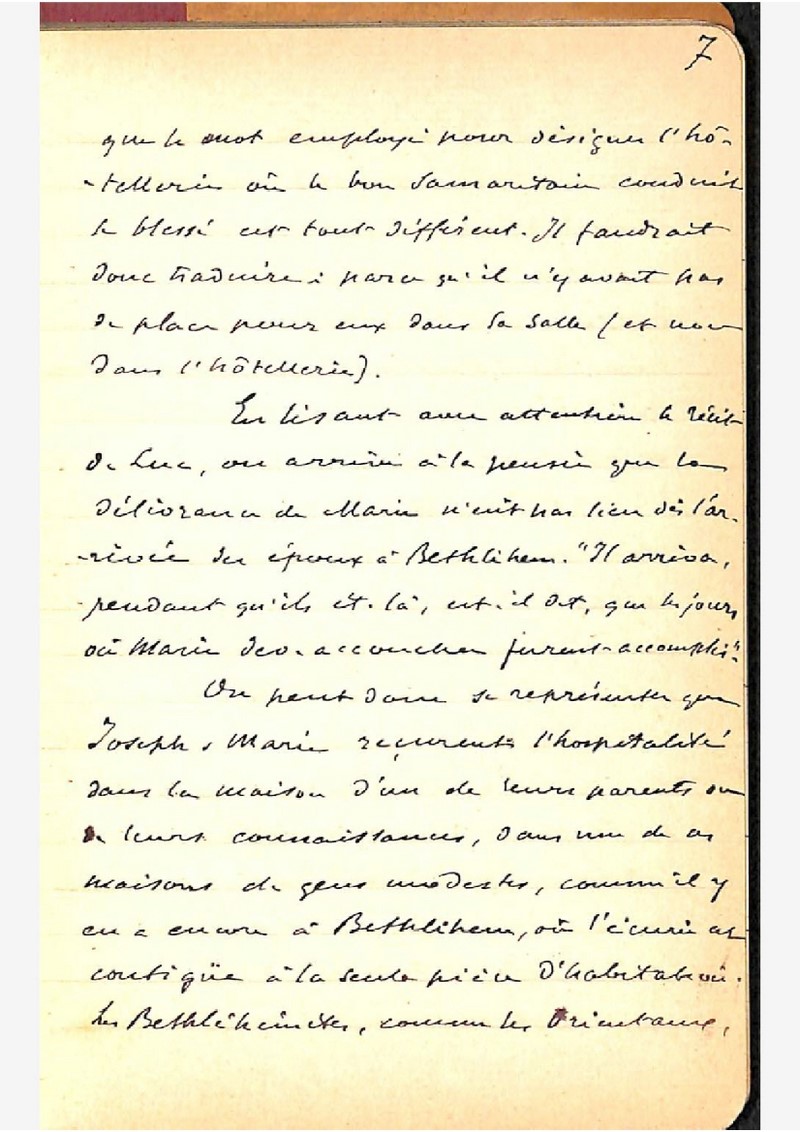 7
que le mot employé pour désigner l'hô-
-tellerie où le bon Samaritain conduit
le blessé est tout différent. Il faudrait
donc traduire : parce qu'il n'y avait pas
de place pour eux dans la salle (et non
dans l'hôtellerie).
En lisant avec attention le récit
de Luc, on arrive à la pensée que la
délivrance de Marie n'eût pas lieu dès l'ar-
-rivée des époux à Bethléhem. "Il arriva,
pendant qu'ils ét. là, est-il dit, que les jours
où Marie dev. accoucher furent accomplis".
On peut donc se représenter que
Joseph & Marie reçurent l'hospitalité
dans la maison d'un de leurs parents ou
de leurs connaissances, dans une de ces
maisons de gens modestes, comme il y
en a encore à Bethléhem, où l'écurie est
contigüe à la seule pièce d'habitation.
Les Bethléhémites, comme les Orientaux,